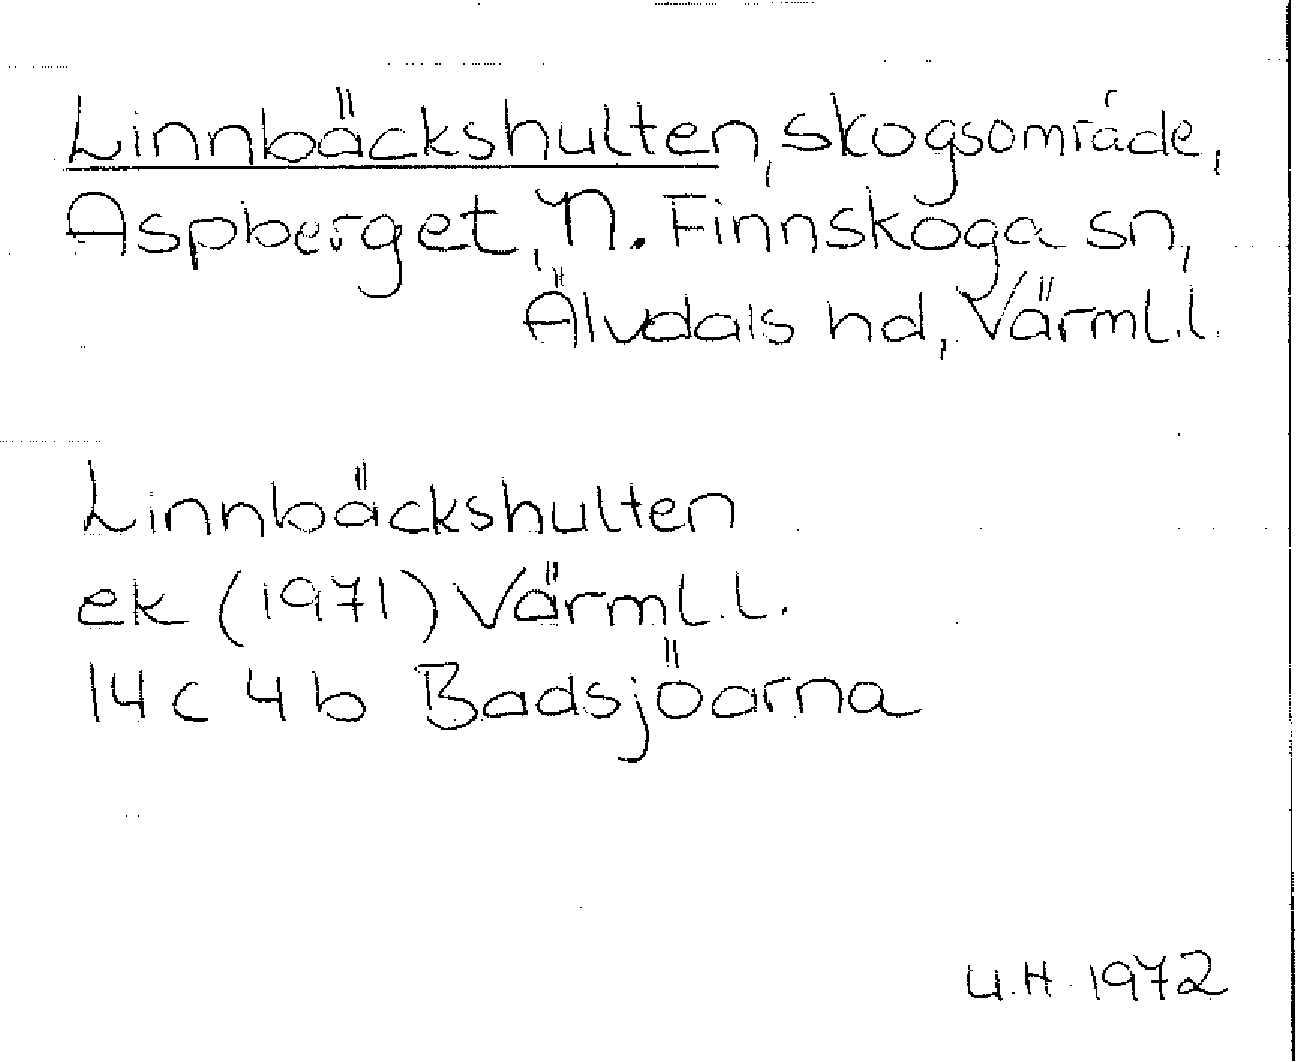 Linnbäckshulten, skogsområde,
Aspberget, N. Finnskoga sn,
Älvdals hd, Värml.l.
Linnbäckshulten
ek (1971) Värml.l.
14c 4b Badsjöarna
U.H. 1972